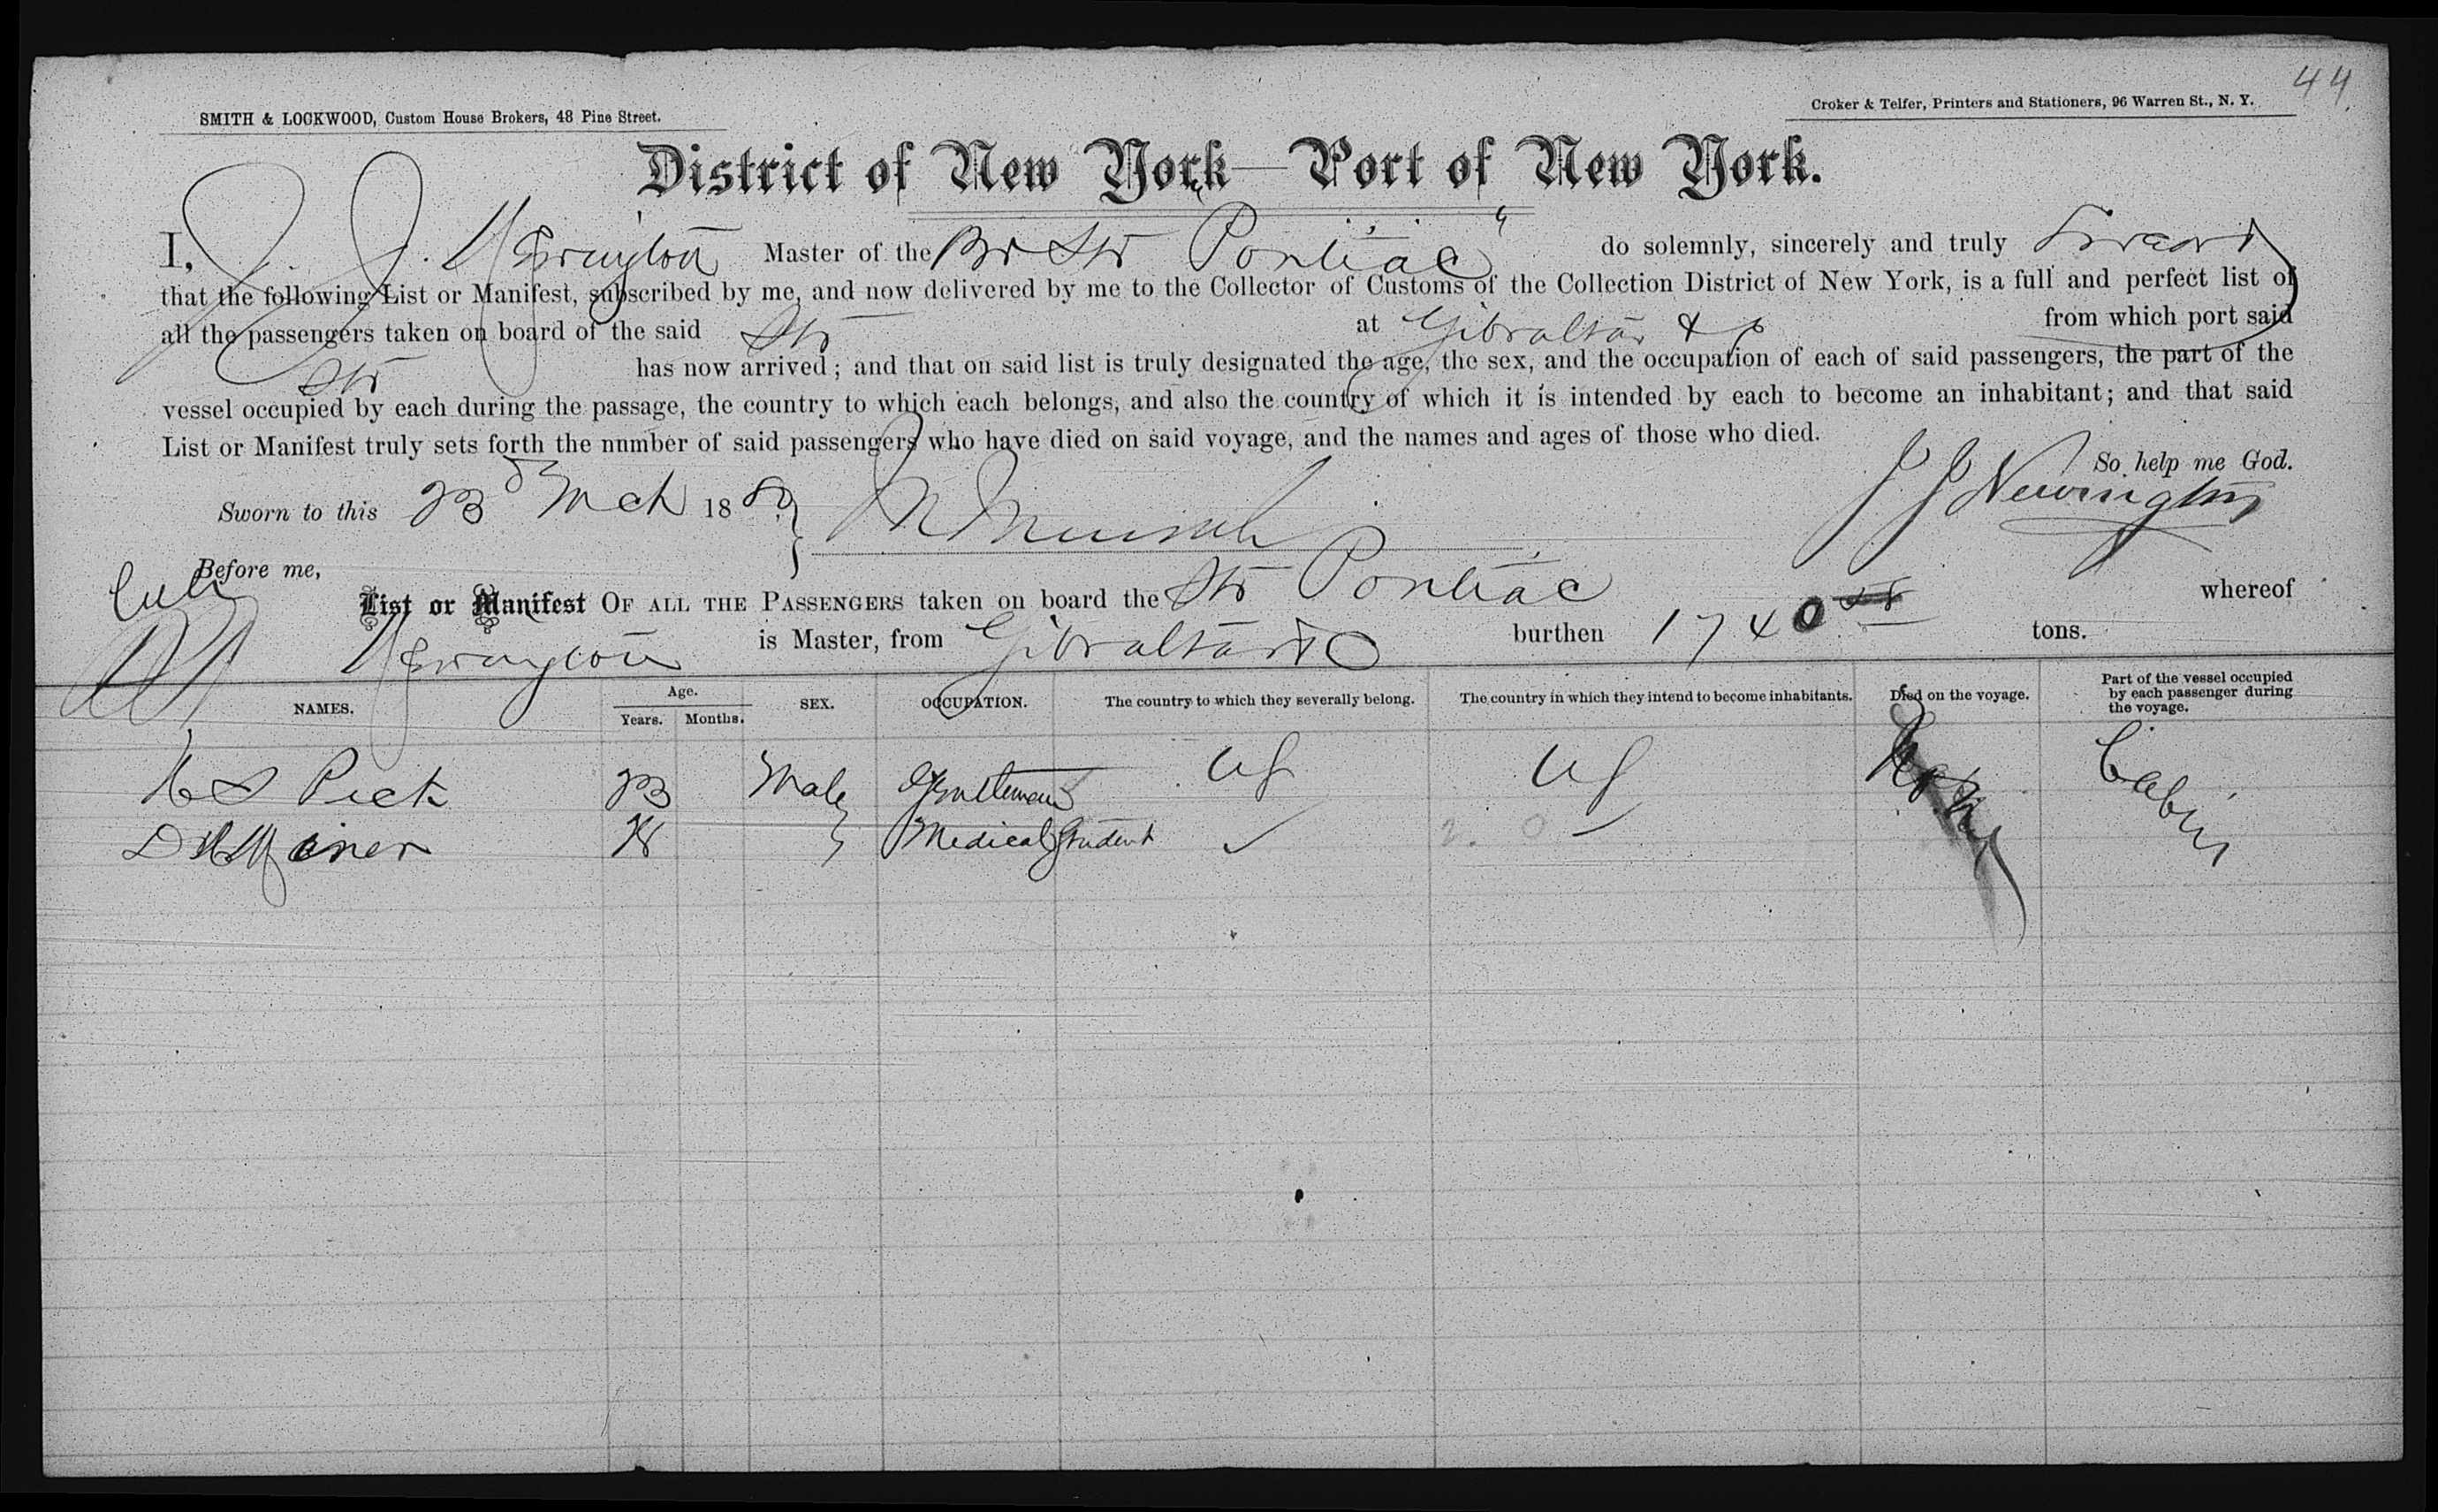 44
SMITH & LOCKWOOD, Custom House Brokers, 48 Pine Street.
Croker & Telfer, Printers and Stationers, 96 Warren St., N. Y.
District of New York—Port of New York.
I, J. J. Newington Master of the Br Str "Pontiac" do solemnly, sincerely and truly Swear
that the following List or Manifest, subscribed by me, and now delivered by me to the Collector of Customs of the Collection District of New York, is a full and perfect list of
all the passengers taken on board of the said Str at Gibraltar & from which port said
Str has now arrived; and that on said list is truly designated the age, the sex, and the occupation of each of said passengers, the part of the
vessel occupied by each during the passage, the country to which each belongs, and also the country of which it is intended by each to become an inhabitant; and that said
List or Manifest truly sets forth the nnmber of said passengers who have died on said voyage, and the names and ages of those who died.
So help me God.
Sworn to this 23d Mch 188 J J Newington
Before me,
List or Manifest OF ALL THE PASSENGERS taken on board the Str Pontiac whereof
Newington is Master, from Gibraltar burthen 1740 tons.
NAMES. Age. Years. Months. SEX. OCCUPATION. The country to which they severally belong. The country in which they intend to become inhabitants. Died on the voyage. Part of the vessel occupied by each passenger during the voyage.
H S Peck 23 Male Gentleman US US Cabin
Medical Student ✓